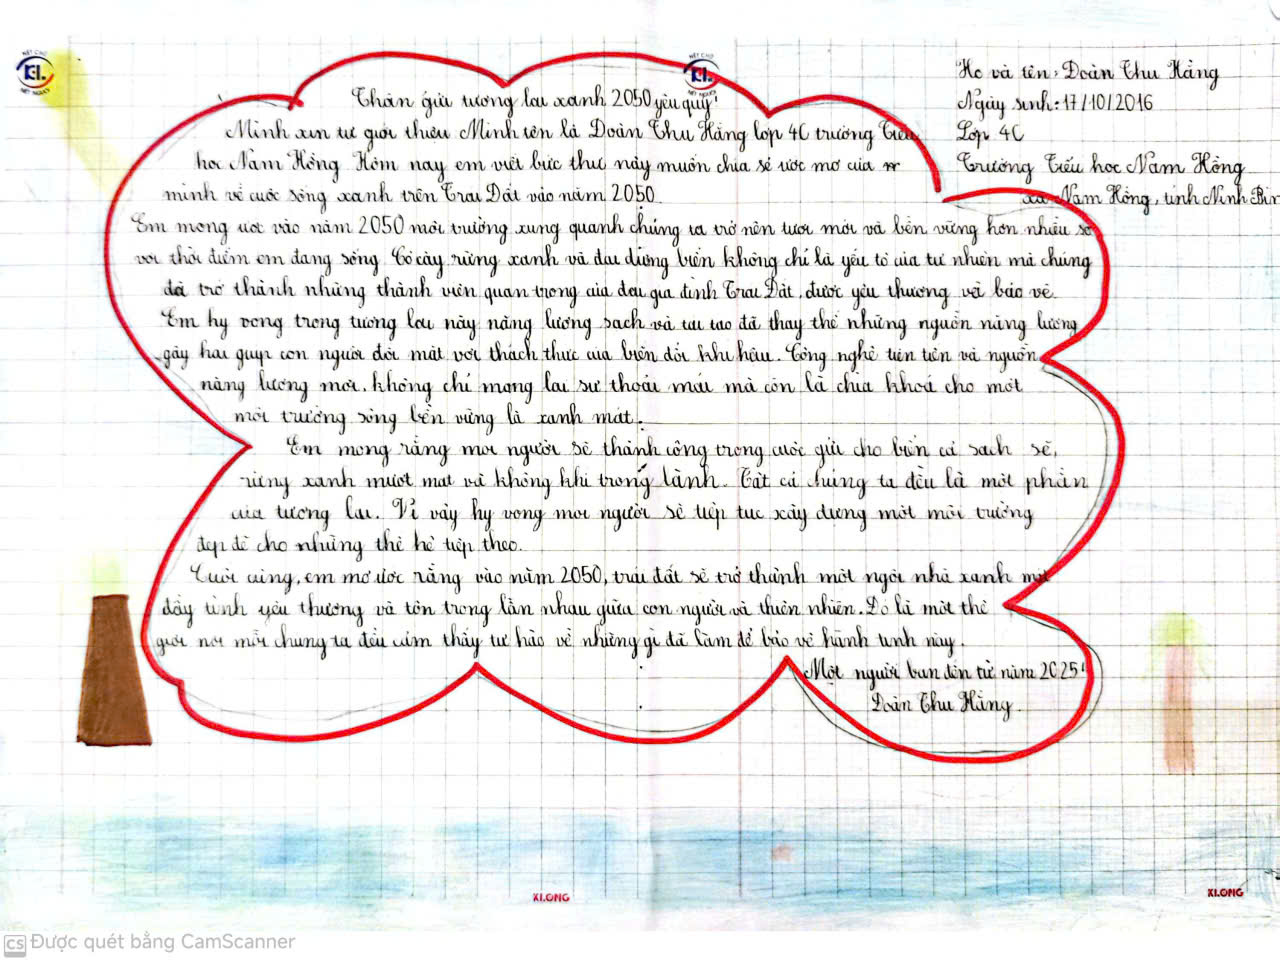 Họ và tên: Đoàn Thu Hằng
Ngày sinh: 17/10/2016
Lớp 4C
Trường Tiểu học Nam Hồng
xã Nam Hồng, tỉnh Ninh Bìn
Thân gửi tương lai xanh 2050 yêu quý!
Mình xin tự giới thiệu Mình tên là Đoàn Thu Hằng lớp 4C trường Tiểu
học Nam Hồng Hôm nay em viết bức thư này muốn chia sẻ ước mơ của
mình về cuộc sống xanh trên Trái Đất vào năm 2050.
Em mong ước vào năm 2050 môi trường xung quanh chúng ta trở nên tươi mới và bền vững hơn nhiều so
với thời điểm em đang sống. Cỏ cây, rừng xanh và đại dương biển không chỉ là yếu tố của tự nhiên mà chúng
đã trở thành những thành viên quan trọng của đại gia đình Trái Đất, được yêu thương và bảo vệ.
Em hy vọng trong tương lai này năng lượng sạch và tái tạo đã thay thế những nguồn năng lượng
gây hại giúp con người đối mặt với thách thức của biến đổi khí hậu. Công nghệ tiên tiến và nguồn
năng lượng mới. không chỉ mang lại sự thoải mái mà còn là chìa khoá cho một
môi trường sống bền vững là xanh mát.
Em mong rằng mọi người sẽ thành công trong cuộc giữ cho biển cả sạch sẽ,
rừng xanh mượt mát và không khí trong lành. Tất cả chúng ta đều là một phần
của tương lai. Vì vậy hy vọng mọi người sẽ tiếp tục xây dựng một môi trường
đẹp đẽ cho những thế hệ tiếp theo.
Cuối cùng, em mơ ước rằng vào năm 2050, trái đất sẽ trở thành một ngôi nhà xanh mát
đầy tình yêu thương và tôn trọng lẫn nhau giữa con người và thiên nhiên. Đó là một thế
giới nơi mỗi chúng ta đều cảm thấy tự hào về những gì đã làm để bảo vệ hành tinh này.
Một người bạn đến từ năm 2025!
Đoàn Thu Hằng.
KLONG
KLONG
CS Được quét bằng CamScanner